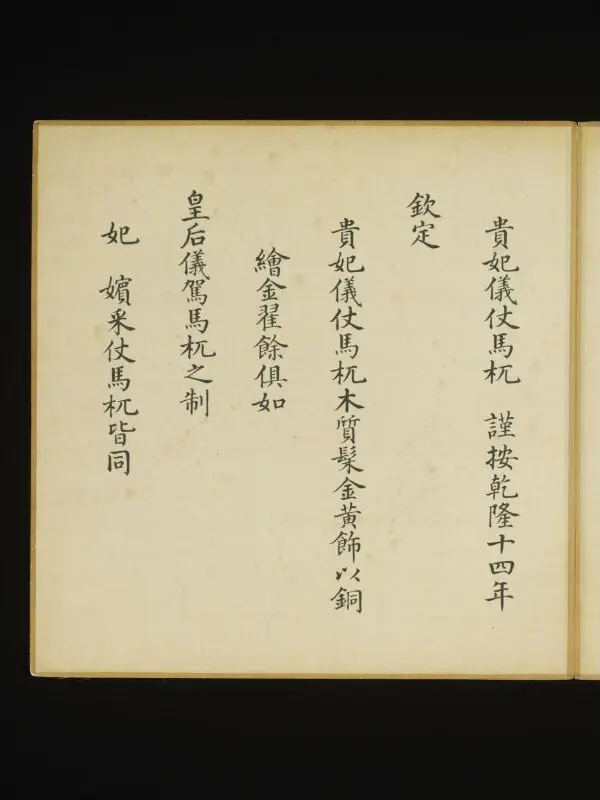 貴妃儀仗馬杌　謹按乾隆十四年
欽定
貴妃儀仗馬杌木質髹金黃飾以銅
繪金翟餘俱如
皇后儀駕馬杌之制
妃　嬪采仗馬杌皆同